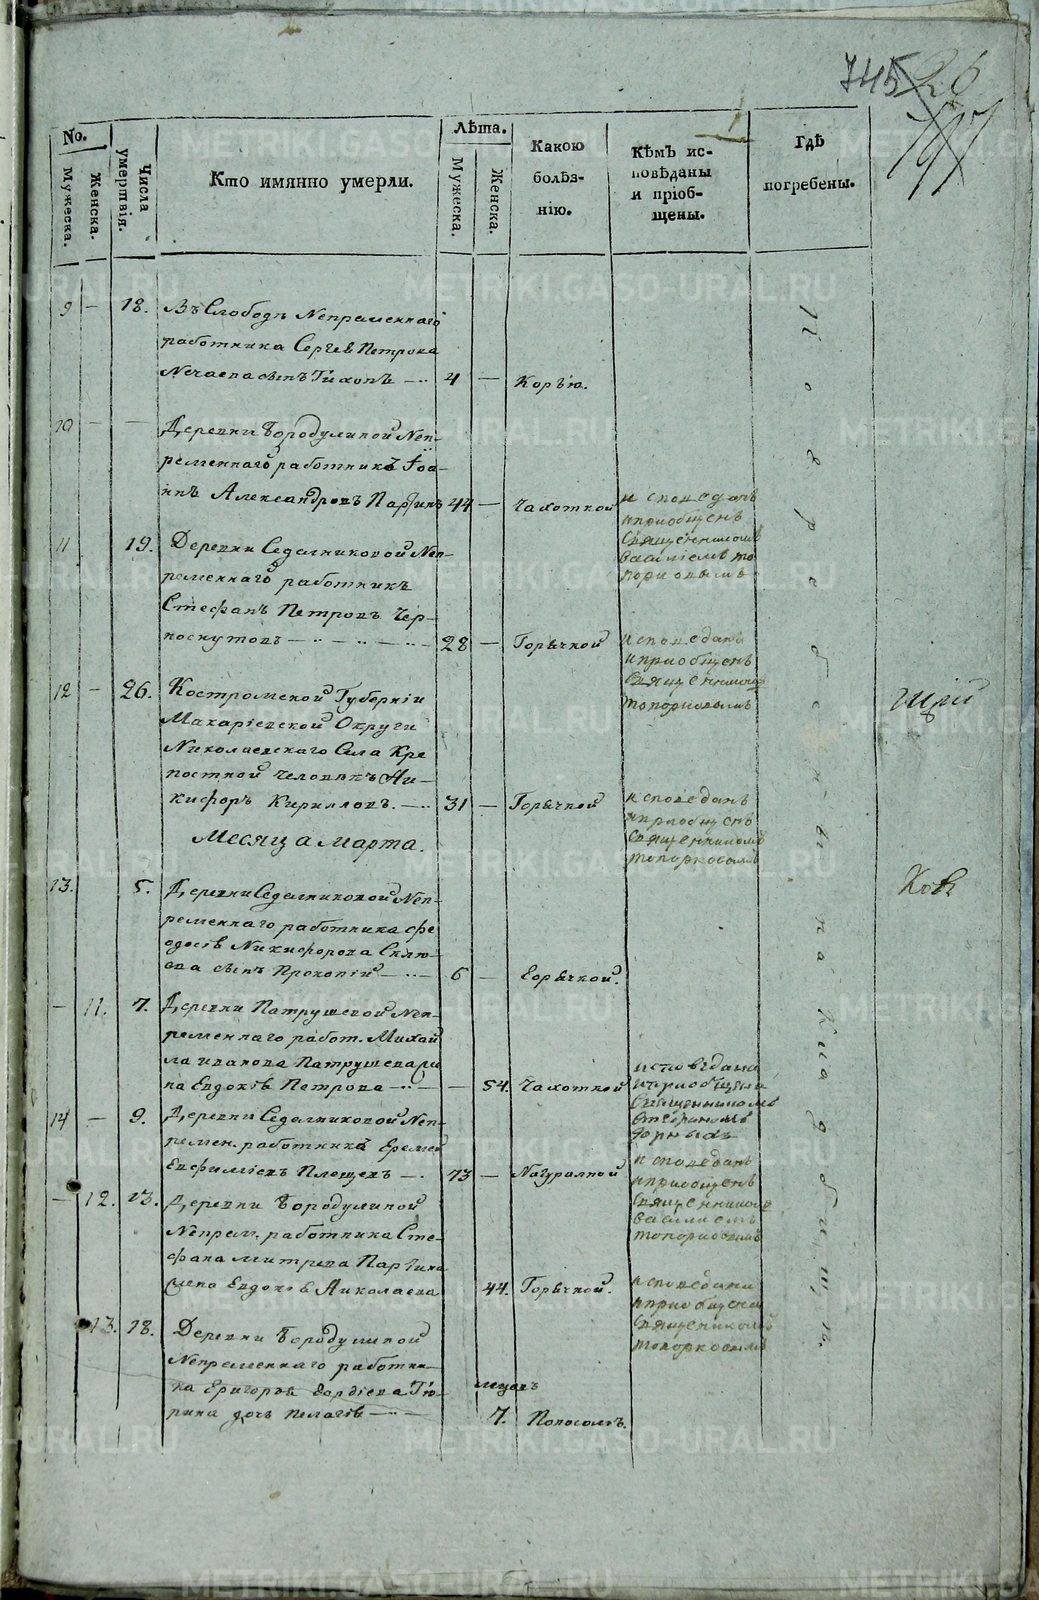 745 26
797
No.
Мужеска.
Женска.
Числа умертвія.
Кто имянно умерли.
Лѣта.
Мужеска.
Женска.
Какою болѣз-нію.
Кѣмъ ис-повѣданы и пріоб-щены.
Гдѣ погребены.
9 — 18. Въ Слободѣ Непременнаго
работника Сергѣя Петрова
Нечаева сынъ Тихонъ — 4 — Корью.
10 — — Деревни Бородулиной Неп-
ременнаго работникъ Іоа-
ннъ Александровъ Паргинъ 44 — Чахоткой
исповеданъ
и приобщенъ
Священникомъ
Василіемъ То
порковымъ
11 19. Деревни Седелниковой Неп-
ременнаго работникъ
Стефанъ Петровъ Чер-
носкутовъ — 28 — Горячкой
исповеданъ
и приобщенъ
Священникомъ
Топорковымъ
12 — 26. Костромской Губерніи
Макаріевской Округи
Николаевскаго Села Кре
постной человѣкъ Ни-
кифоръ Кирилловъ. — 31 — Горячкой
исповеданъ
и приобщенъ
Священникомъ
Топорковымъ
Месяца марта.
13. 5. Деревни Седелниковой Неп-
ременнаго работника Фе
одосѣя Никифорова
сынъ Прокопій — 6 — Горячкой.
— 11. 7. Деревни Патрушевой Неп-
ременнаго работ. Михай
ла Иванова Патрушева
на Евдокія Петрова — — 54. Чахоткой
исповѣдана
и приобщена
Священникомъ
14 — 9. Деревни Седелниковой Неп-
ремен. работникъ Еремей
Евфиміевъ Плещевъ — 73 — Натуралной
исповеданъ
и приобщенъ
Священникомъ
Василиемъ
Топорковымъ
— 12. 13. Деревни Бородулиной
Непрем. работника Сте-
фана Митрева Паргина
жена Евдокія Николаева 44. Горячкой.
исповедана
и приобщена
Священникомъ
Топорковымъ
13. 18. Деревни Бородулиной
Непременнаго работни-
ка Григорья Гордіева Тю-
рина дочь Пелагія — месецъ 7. Поносомъ.
На Передбе
кладбищѣ.
щій
METRIKI.GASO-URAL.RU